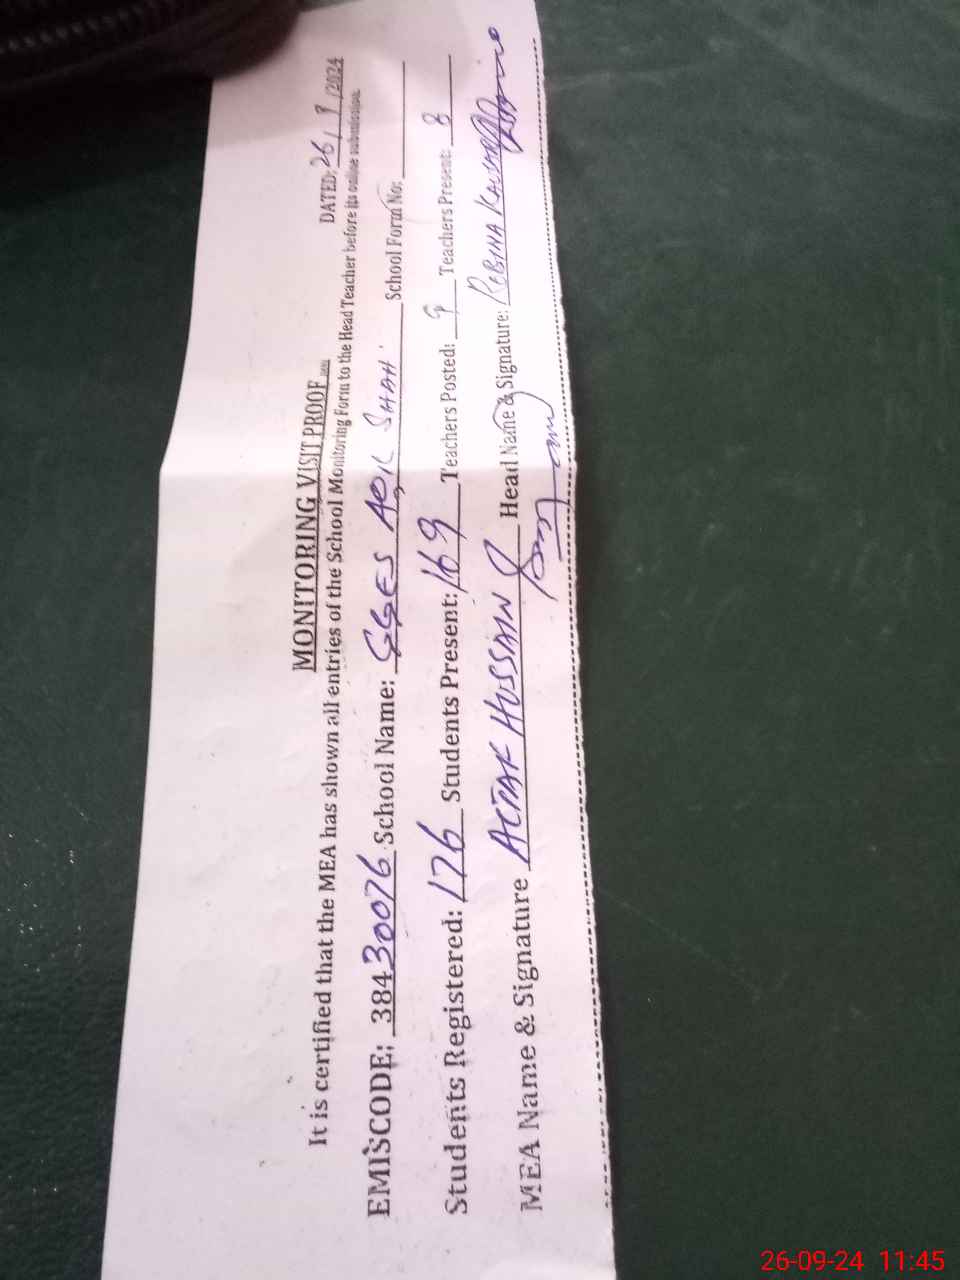 MONITORING VISIT PROOF
DATED: 26/9/2024
It is certified that the MEA has shown all entries of the School Monitoring Form to the Head Teacher before its online submission.
EMISCODE: 38430076 School Name: GGES ADIL SHAH School Form No:
Students Registered: 176 Students Present: 169 Teachers Posted: 9 Teachers Present: 8
MEA Name & Signature AKHTAR HUSSAIN Head Name & Signature: RUBINA KAUSAR
26-09-24 11:45